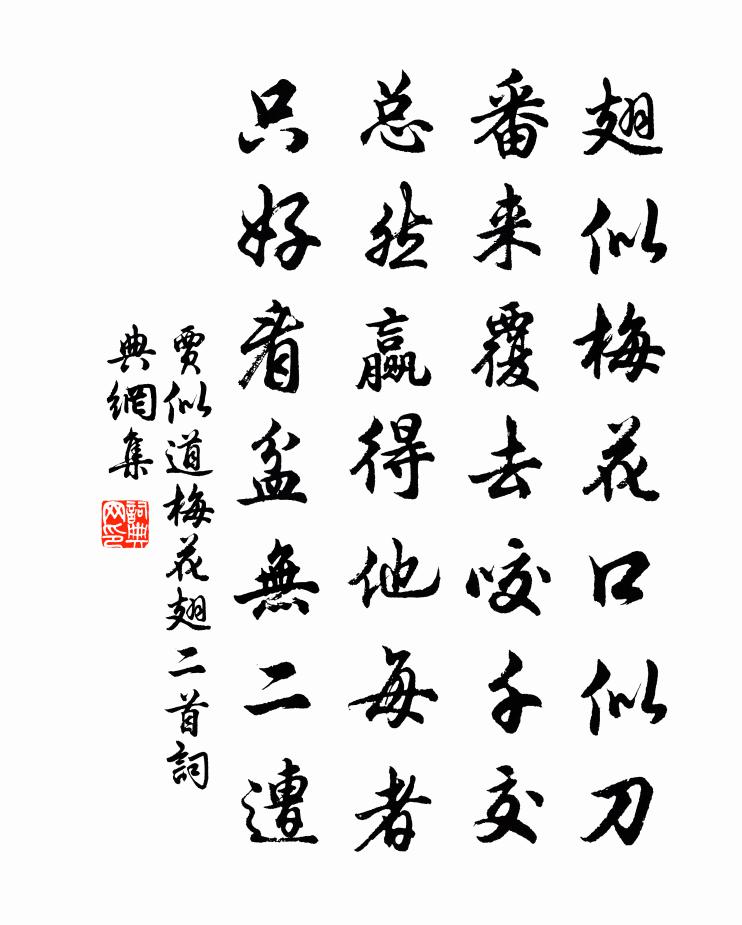 翅似梅花口似刀
番来覆去咬千交
总然赢得他每者
只好看盆無二遭
賈似道梅花翅二首詞
典網集
詞典網印